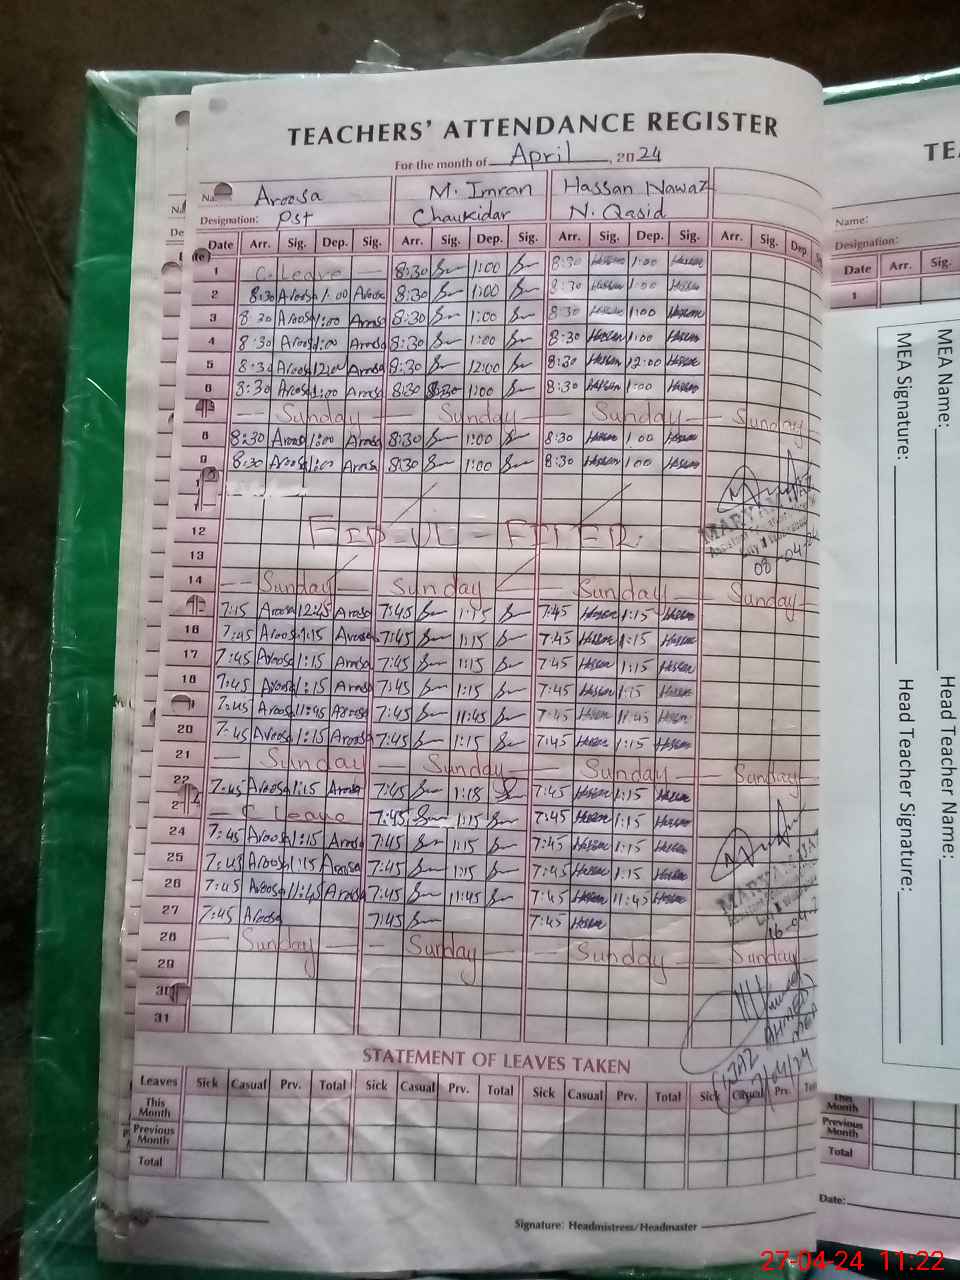 TEACHERS' ATTENDANCE REGISTER
For the month of April, 2024
Aroosa M. Imran Hassan Nawaz
Designation: Pst Chaukidar N. Qasid
Date Arr. Sig. Dep. Sig. Arr. Sig. Dep. Sig. Arr. Sig. Dep. Sig. Arr. Sig. Dep
1 C. Leave — 8:30 1:00 8:30 Hassan 1:00 Hassan
2 8:30 Aroosa 1:00 Aroosa 8:30 1:00 8:30 Hassan 1:00 Hassan
3 8 30 Aroosa 1:00 Aroosa 8:30 1:00 8:30 Hassan 1:00 Hassan
4 8:30 Aroosa 1:00 Aroosa 8:30 1:00 8:30 Hassan 1:00 Hassan
5 8:30 Aroosa 12:00 Aroosa 8:30 12:00 8:30 Hassan 12:00 Hassan
6 8:30 Aroosa 1:00 Aroosa 8:30 1:00 8:30 Hassan 1:00 Hassan
— Sunday — Sunday — Sunday — Sunday
8 8:30 Aroosa 1:00 Aroosa 8:30 1:00 8:30 Hassan 1 00 Hassan
9 8:30 Aroosa 1:00 Aroosa 8:30 1:00 8:30 Hassan 1 00 Hassan
12
08-04-24
13
14 — Sunday — Sunday — Sunday — Sunday
7:15 Aroosa 12:45 Aroosa 7:45 1:15 7:45 Hassan 1:15 Hassan
16 7:45 Aroosa 1:15 Aroosa 7:45 1:15 7:45 Hassan 1:15 Hassan
17 7:45 Aroosa 1:15 Aroosa 7:45 1:15 7:45 Hassan 1:15 Hassan
18 7:45 Aroosa 1:15 Aroosa 7:45 1:15 7:45 Hassan 1:15 Hassan
7:45 Aroosa 11:45 Aroosa 7:45 11:45 7:45 Hassan 11:45 Hassan
20 7:45 Aroosa 1:15 Aroosa 7:45 1:15 7:45 Hassan 1:15 Hassan
21 — Sunday — Sunday — Sunday — Sunday
22 7:45 Aroosa 1:15 Aroosa 7:45 1:15 7:45 Hassan 1:15 Hassan
— C Leave 7:45 1:15 7:45 Hassan 1:15 Hassan
24 7:45 Aroosa 1:15 Aroosa 7:45 1:15 7:45 Hassan 1:15 Hassan
25 7:45 Aroosa 1:15 Aroosa 7:45 1:15 7:45 Hassan 1:15 Hassan
26 7:45 Aroosa 11:45 Aroosa 7:45 11:45 7:45 Hassan 11:45 Hassan
27 7:45 Aroosa 7:45 7:45 Hassan
28 — Sunday — Sunday — Sunday — Sunday
29
30
31
IJAZ AHMED
STATEMENT OF LEAVES TAKEN
Leaves Sick Casual Prv. Total Sick Casual Prv. Total Sick Casual Prv. Total Sick Casual Prv.
This Month
Previous Month
Total
Signature: Headmistress/Headmaster
Name:
Designation:
Date Arr. Sig.
1
MEA Name: Head Teacher Name:
MEA Signature: Head Teacher Signature:
This Month
Previous Month
Total
Date:
27-04-24 11:22